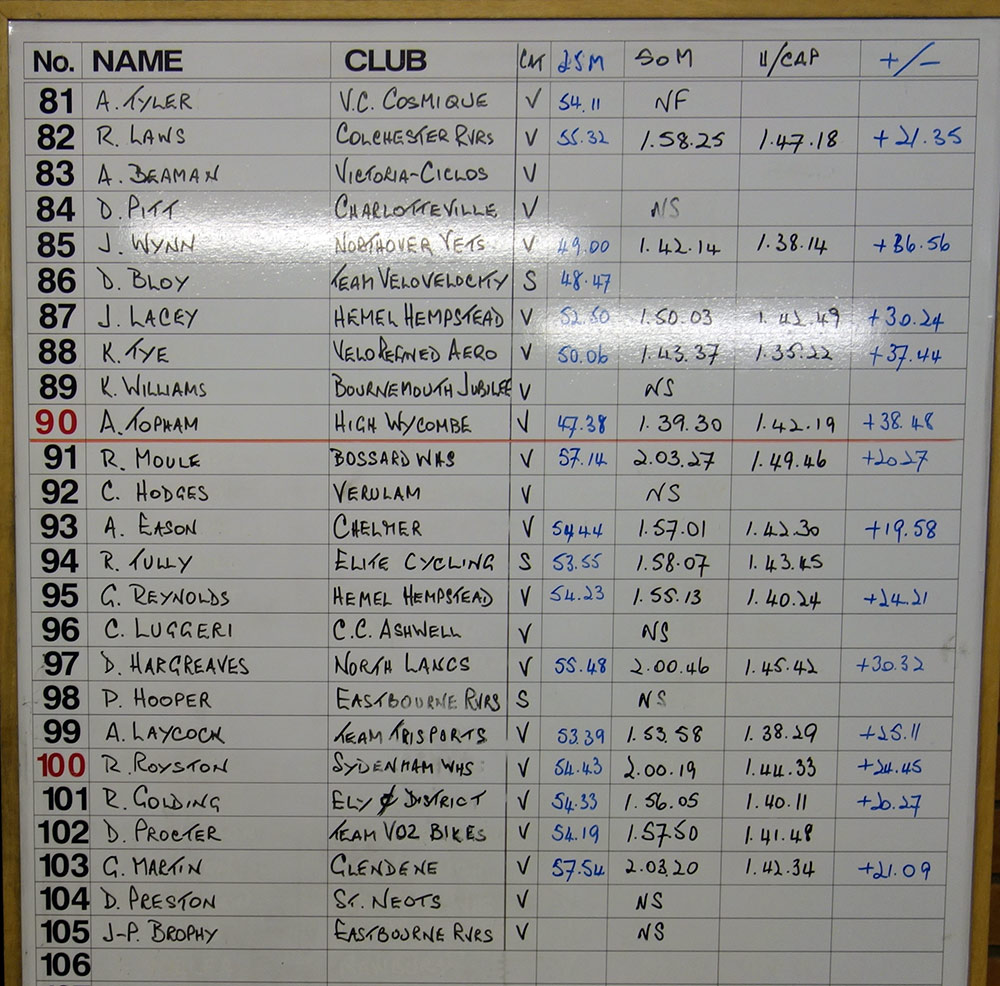 No. NAME CLUB CAT 25M 50M H/CAP +/-
81 A. TYLER V.C. COSMIQUE V 54.11 NF
82 R. LAWS COLCHESTER RVRS V 55.32 1.58.25 1.47.18 +21.35
83 A. BEAMAN VICTORIA-CICLOS V
84 D. PITT CHARLOTTEVILLE V NS
85 J. WYNN NORTHOVER VETS V 49.00 1.42.14 1.38.14 +36.56
86 D. BLOY TEAM VELOVELOCITY S 48.47
87 J. LACEY HEMEL HEMPSTEAD V 52.50 1.50.03 1.42.49 +30.24
88 K. TYE VELOREFINED AERO V 50.06 1.43.37 1.35.22 +37.44
89 K. WILLIAMS BOURNEMOUTH JUBILEE V NS
90 A. TOPHAM HIGH WYCOMBE V 47.38 1.39.30 1.42.19 +38.48
91 R. MOULE BOSSARD WHS V 57.14 2.03.27 1.49.46 +20.27
92 C. HODGES VERULAM V NS
93 A. EASON CHELMER V 54.44 1.57.01 1.42.30 +19.58
94 R. TULLY ELITE CYCLING S 53.55 1.58.07 1.43.45
95 G. REYNOLDS HEMEL HEMPSTEAD V 54.23 1.55.13 1.40.24 +24.21
96 C. LUGGERI C.C. ASHWELL V NS
97 D. HARGREAVES NORTH LANCS V 55.48 2.00.46 1.45.42 +30.32
98 P. HOOPER EASTBOURNE RVRS S NS
99 A. LAYCOCK TEAM TRISPORTS V 53.39 1.53.58 1.38.29 +25.11
100 R. ROYSTON SYDENHAM WHS V 54.43 2.00.19 1.44.33 +24.45
101 R. GOLDING ELY & DISTRICT V 54.33 1.56.05 1.40.11 +20.27
102 D. PROCTER TEAM VO2 BIKES V 54.19 1.57.50 1.41.48
103 G. MARTIN GLENDENE V 57.54 2.03.20 1.42.34 +21.09
104 D. PRESTON ST. NEOTS V NS
105 J-P. BROPHY EASTBOURNE RVRS V NS
106